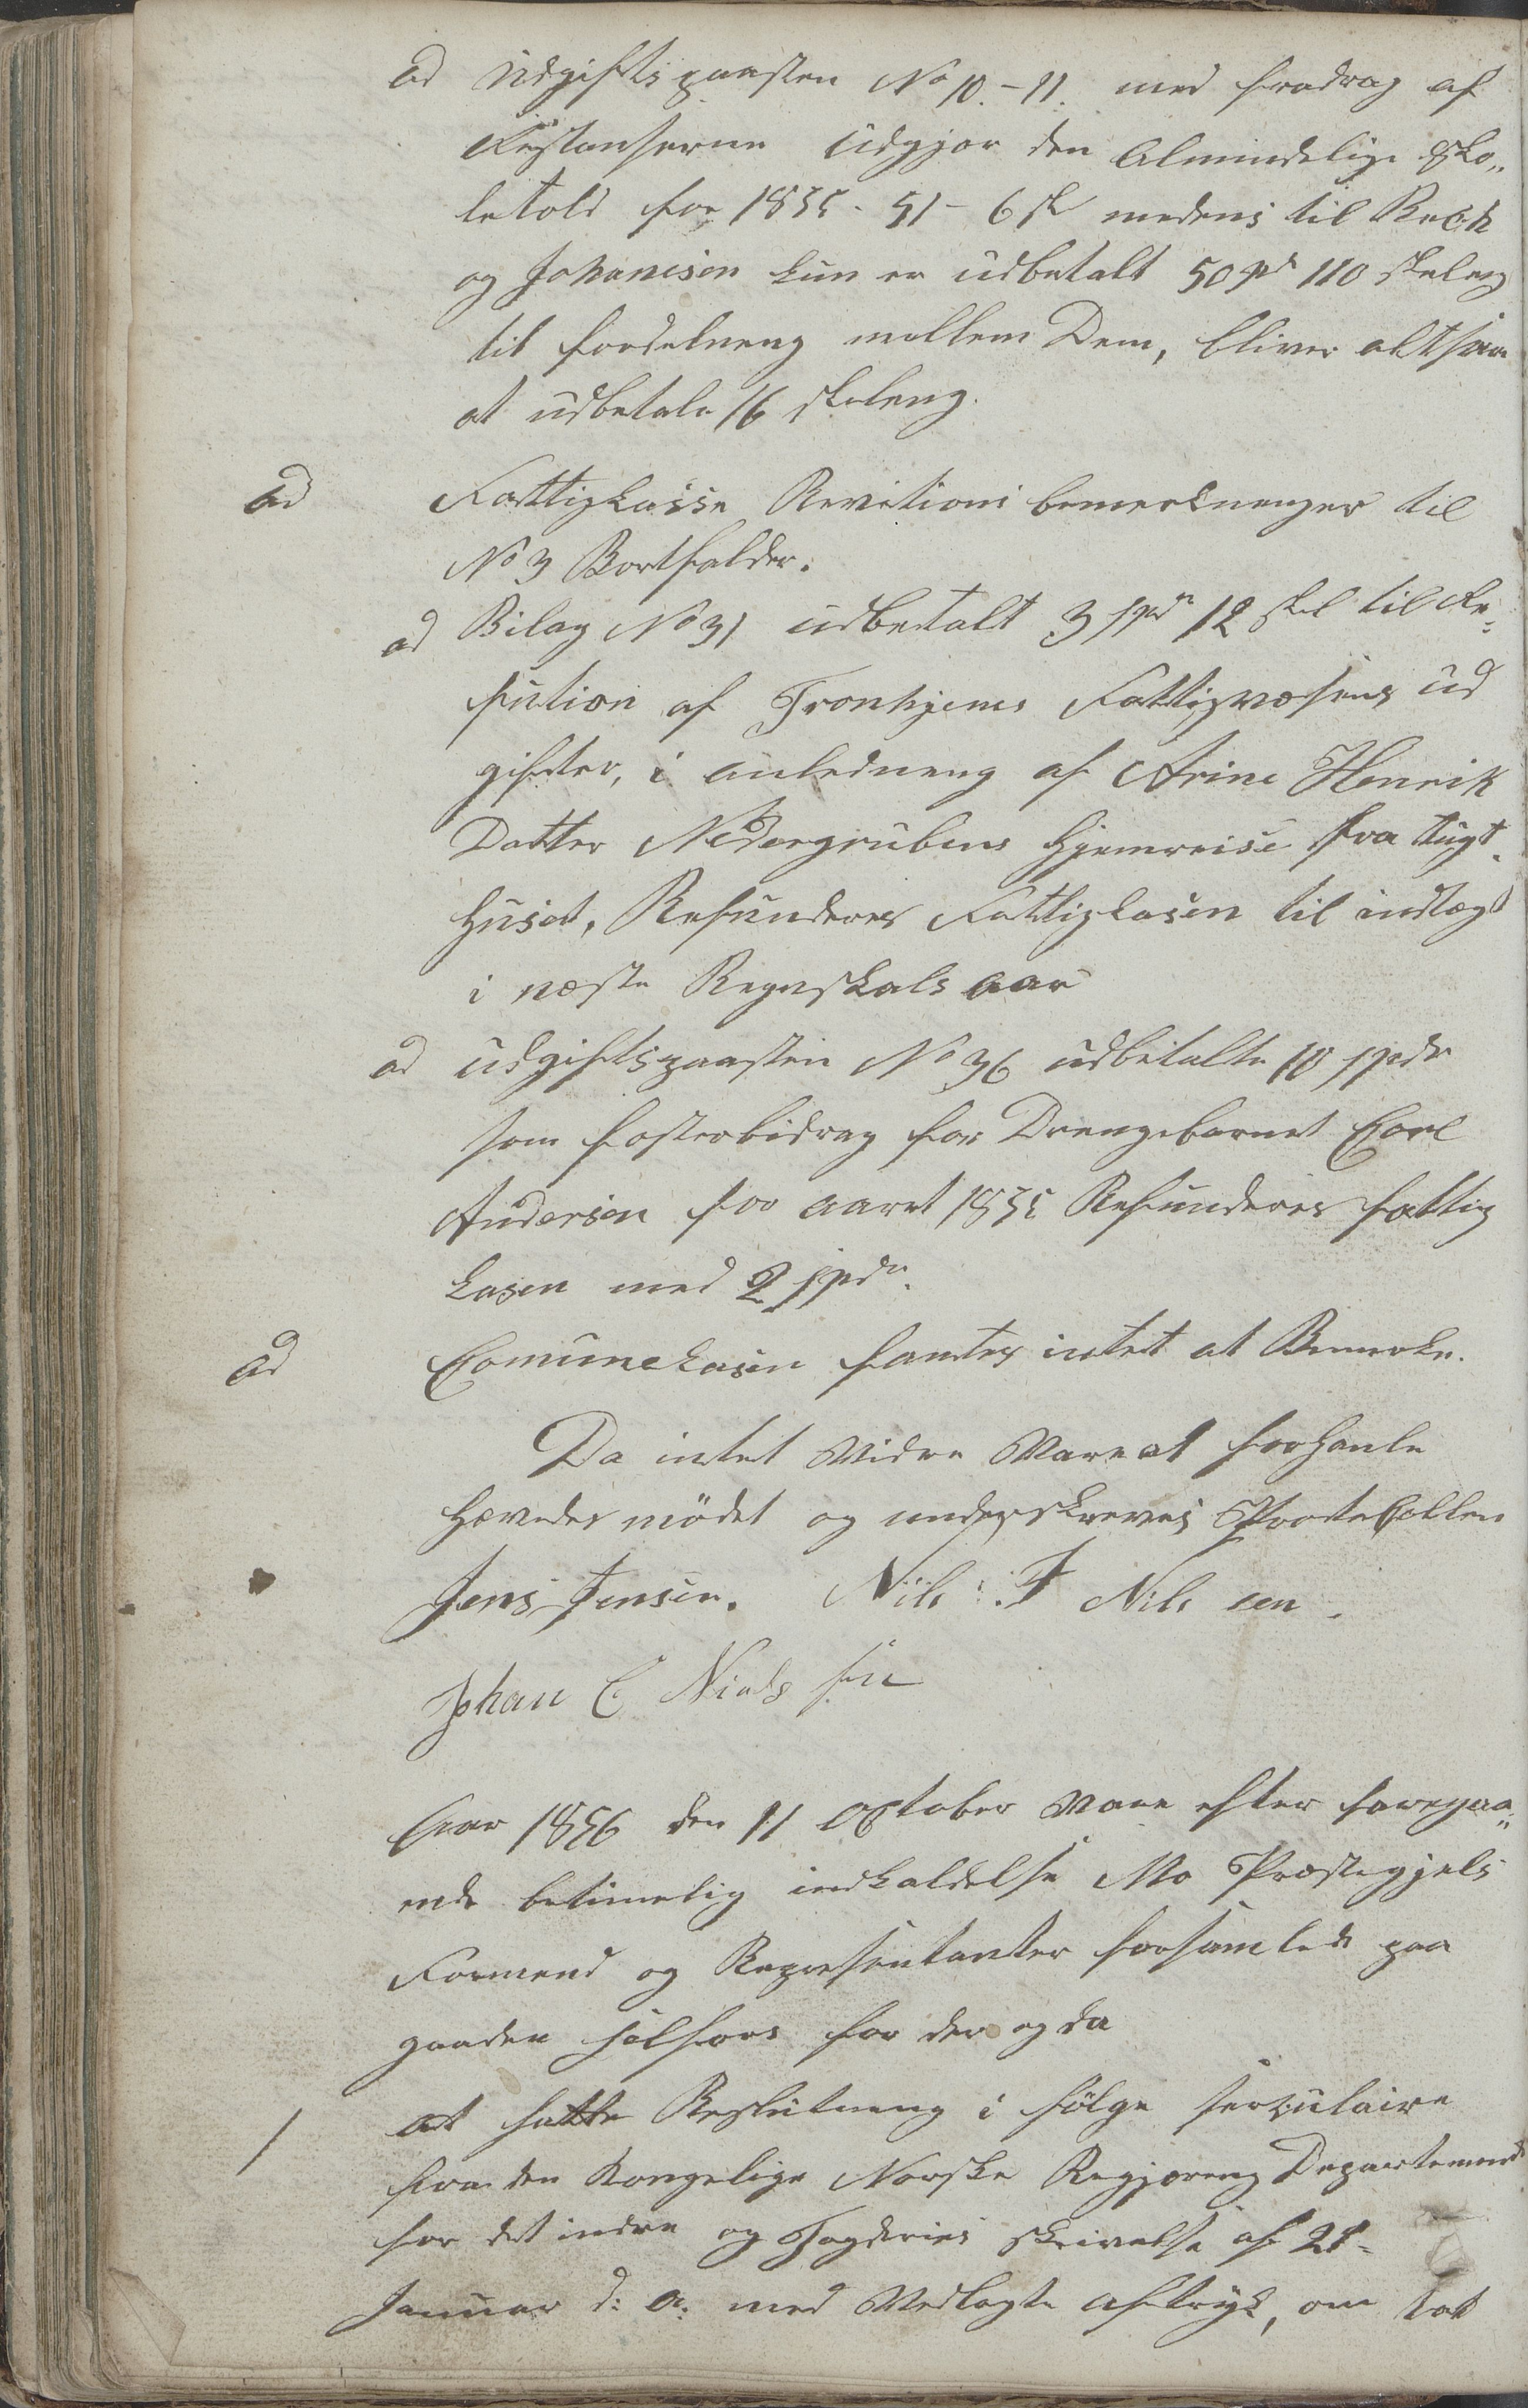 ad Udgiftspaasten No 10.-11. med fradrag af
Restanserne udgjør den Almindelige Sko„
letold for 1855 - 51 - 6 sk medens til Bech
og Johanesen kun er udbetalt 50 spd 110 skeleng
til fordeleneng mellem Dem, bliver altsaa
at udbetale 16 skeleng.
ad Fattigkasse Revitions bemerkninger til
No 3 Bortfalder.
ad Bilag No 31 udbetalt 3 spdr 12 skl til Re„
fution af Tronhjems Fattigvæsens ud
gifter, i anledneng af Arine Henrik
Datter Nedergrubens hjemreise fra tugt„
huset, Refunderes Fattigkasen til indtægt
i næste Regnskabs aar
ad udgiftspaasten No 36 udbetalte 10 spdr
som fosterbidrag for Drengebarnet Carl
Andersen for aaret 1855 Refunderes fattig
kasen med 2 spdr.
ad Comunekasen fantes intet at Bemerke.
Da intet vidre Vare at forhanle
hævedes mødet og underskreves Protokollen
Jens Jensen. Nils J Nils sen.
Johan C Niels sen
Aar 1856 den 11 October Vare efter foregaa„
ende betimelig indkaldelse Mo Præstegjels
Formend og Representanter forsamlede paa
gaaden Selfors for der og da
1 at fatte Beslutneng i følge serculaire
fra den Kongelige Norske Regjereng Departement
for det indre og Fogderies skrivelse af 21-
Januar d: a: med Vedlagte aftryk, om tat